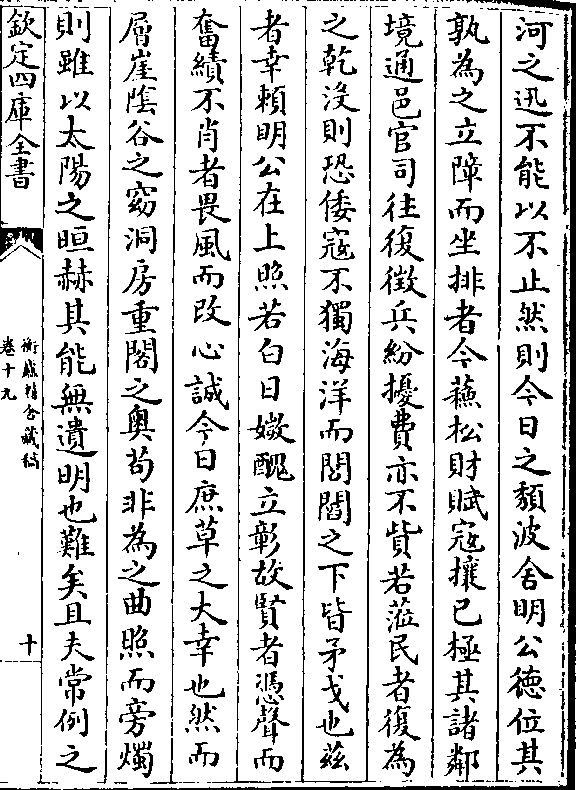 河之迅不能以不止然則今日之頽波舍明公徳位其
孰為之立障而坐排者今蘇松財賦寇攘已極其諸鄰
境通邑官司往復徴兵紛擾費亦不貲若蒞民者復為
之乾没則恐倭寇不獨海洋而閭閻之下皆矛戈也兹
者幸頼明公在上照若白日媺醜立彰故賢者憑聲而
奮績不肖者畏風而改心誠今日庶草之大幸也然而
層崖隂谷之窈洞房重閣之奥茍非為之曲照而旁燭
則雖以太陽之晅赫其能無遺明也難矣且夫常例之
欽定四庫全書
衡廬精舍藏稿
卷十九
十